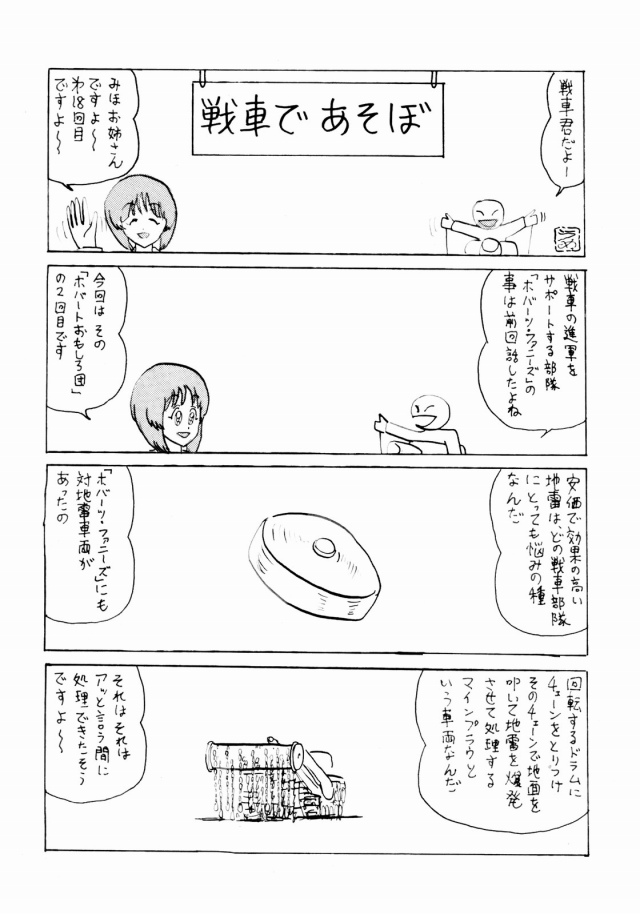 戦車で あそぼ
戦車君だよー
みほお姉さん
ですよ〜
わ18回目
ですよ〜
戦車の進軍を
サポートする部隊
「ホバーツ・ファニーズ」の
事は前回話したよね
今回は その
「ホバートおもしろ団」
の2回目です
安価で効果の高い
地雷は、どの戦車部隊
にとっても悩みの種
なんだ
「ホバーツ・ファニーズ」にも
対地雷車両が
あったの
回転するドラムに
チェーンをとりつけ
そのチェーンで地面を
叩いて地雷を爆発
させて処理する
マインプラウと
いう車両なんだ
それはそれは
アッと言う間に
処理できたそう
ですよ〜